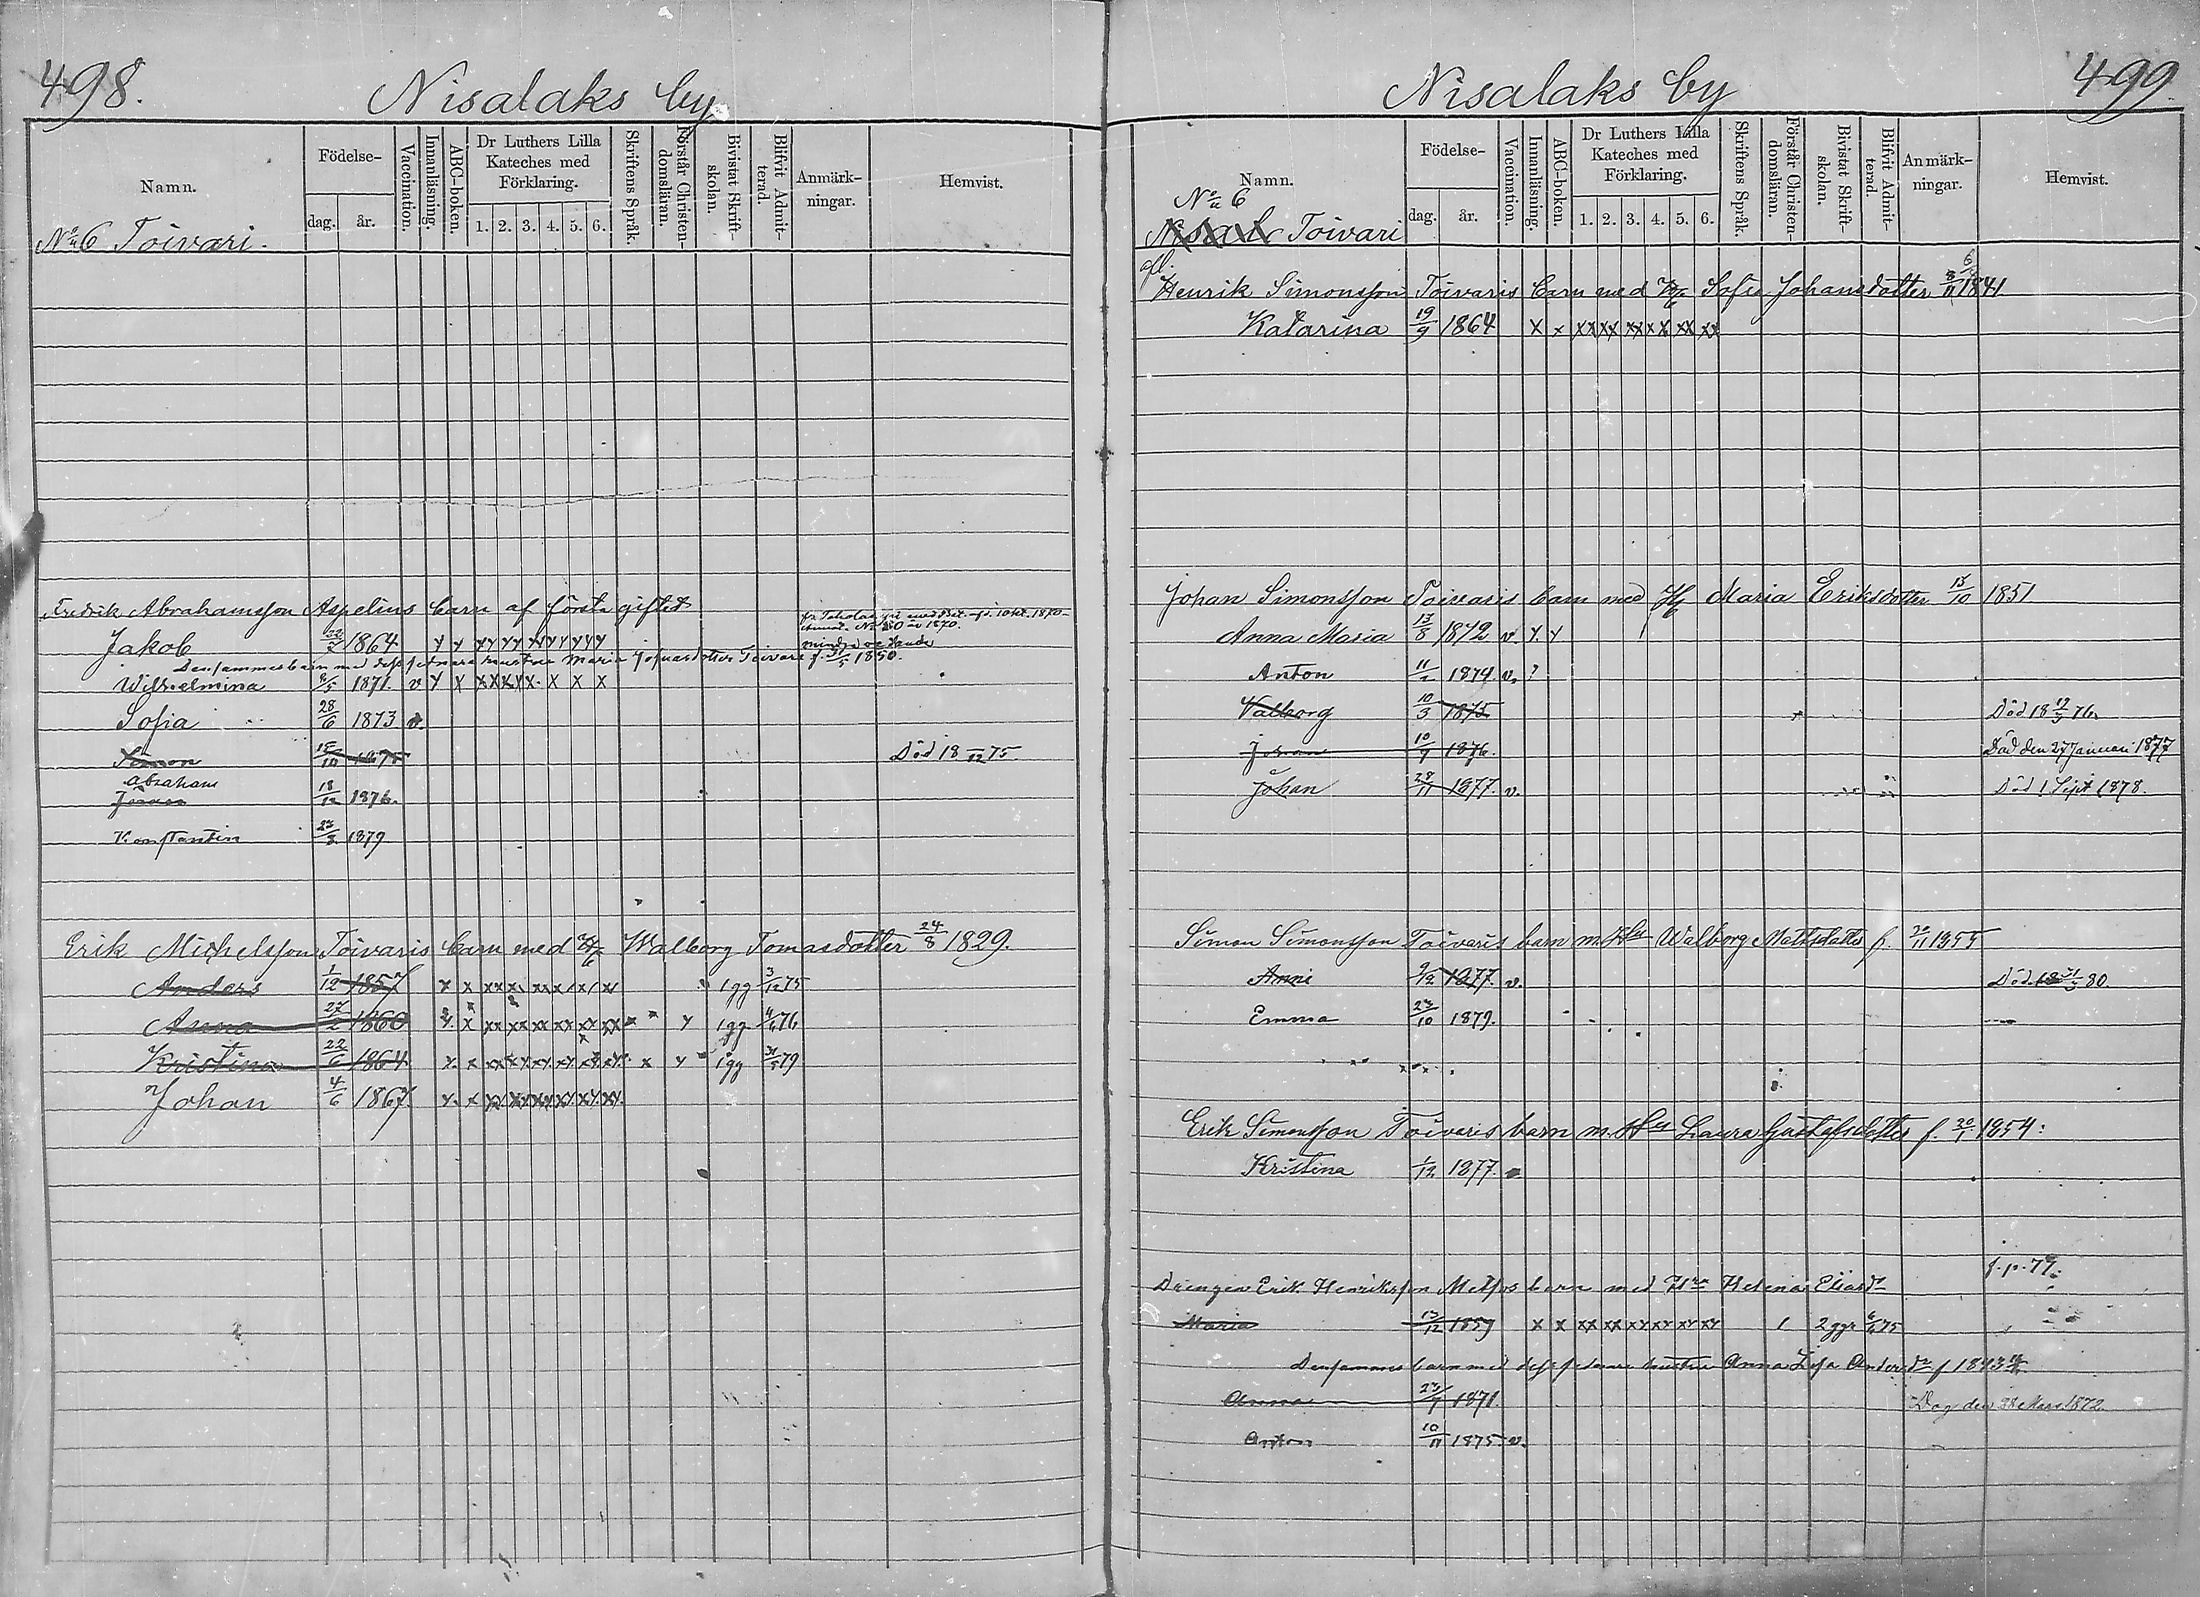 498.
Nisalaks by
Namn.
Födelse-
dag.
år.
Vaccination.
Innanläsning.
ABC-boken.
Dr Luthers Lilla
Kateches med
Förklaring.
1. 2. 3. 4. 5. 6.
Skriftens Språk.
Förstår Christen-
domsläran.
Bivistat Skrift-
skolan.
Blifvit Admit-
terad.
Anmärk-
ningar.
Hemvist.
No 6 Toivari.
Fredrik Abrahamsson Aspelins barn af första giftet
Jakob 22/2 1864 y y yy yy yy yy yy yy
Densammes barn med dess senare hustru Maria Josuasdotter Toivari f. 31/5 1850.
Wilhelmina 1871. v y x xx xx x x x
Sofia 28/6 1873 v.
Simon 1875 Död 18 /12 75
Abraham
18/12 1876.
Konstantin 1879
Erik Michelsson Toivaris barn med H Walborg Tomasdotter 24/8 1829.
Anders 1/12 1857 x x 1 gg 3/12 75
Anna 27/2 1860 y 1 gg 76
Kristina 22/6 1864. y. x x y 1 gg 79
Johan 4/6 1867. y. x
Nisalaks by
499
Namn.
Födelse-
dag.
år.
Vaccination.
Innanläsning.
ABC-boken.
Dr Luthers Lilla
Kateches med
Förklaring.
1. 2. 3. 4. 5. 6.
Skriftens Språk.
Förstår Christen-
domsläran.
Bivistat Skrift-
skolan.
Blifvit Admit-
terad.
Anmärk-
ningar.
Hemvist.
No 6
Toivari
afl.
Henrik Simonsson Toivaris barn med H Sofia Johansdotter 1841
Katarina 19/9 1864 x x xx xx xx x x xx xx
Johan Simonsson Toivaris barn med H Maria Eriksdotter 1851
Anna Maria 13/8 1872 v y y
Anton 1874. v. ?
Valborg 10/3 1875 Död 18 76.
Johan 1876. Död den 27 Januari 1877
Johan 28/11 1877. v. Död 1 Sept 1878.
Simon Simonsson Toivaris barn m. Hu Walborg Mattsdotter f. 1855
Anni 9/12 1877. v. Död 80
Emma 23/10 1879.
Erik Simonsson Toivaris barn m. Hu Laura Gustafsdotter f. 30/1 1854:
Kristina 1/12 1877.
f. p. 79.
Drengen Erik Henriksson barn med Helena Eliasdr
Maria 13/12 1859 x x xx xx xy xy xy xy 1 2 ggr 75
Densammes barn med dess senare hustru Anna Lisa Andersdr f 1843
Anna 1871. Dog den 28 Mars 1872.
Anton 10/11 1875 v.